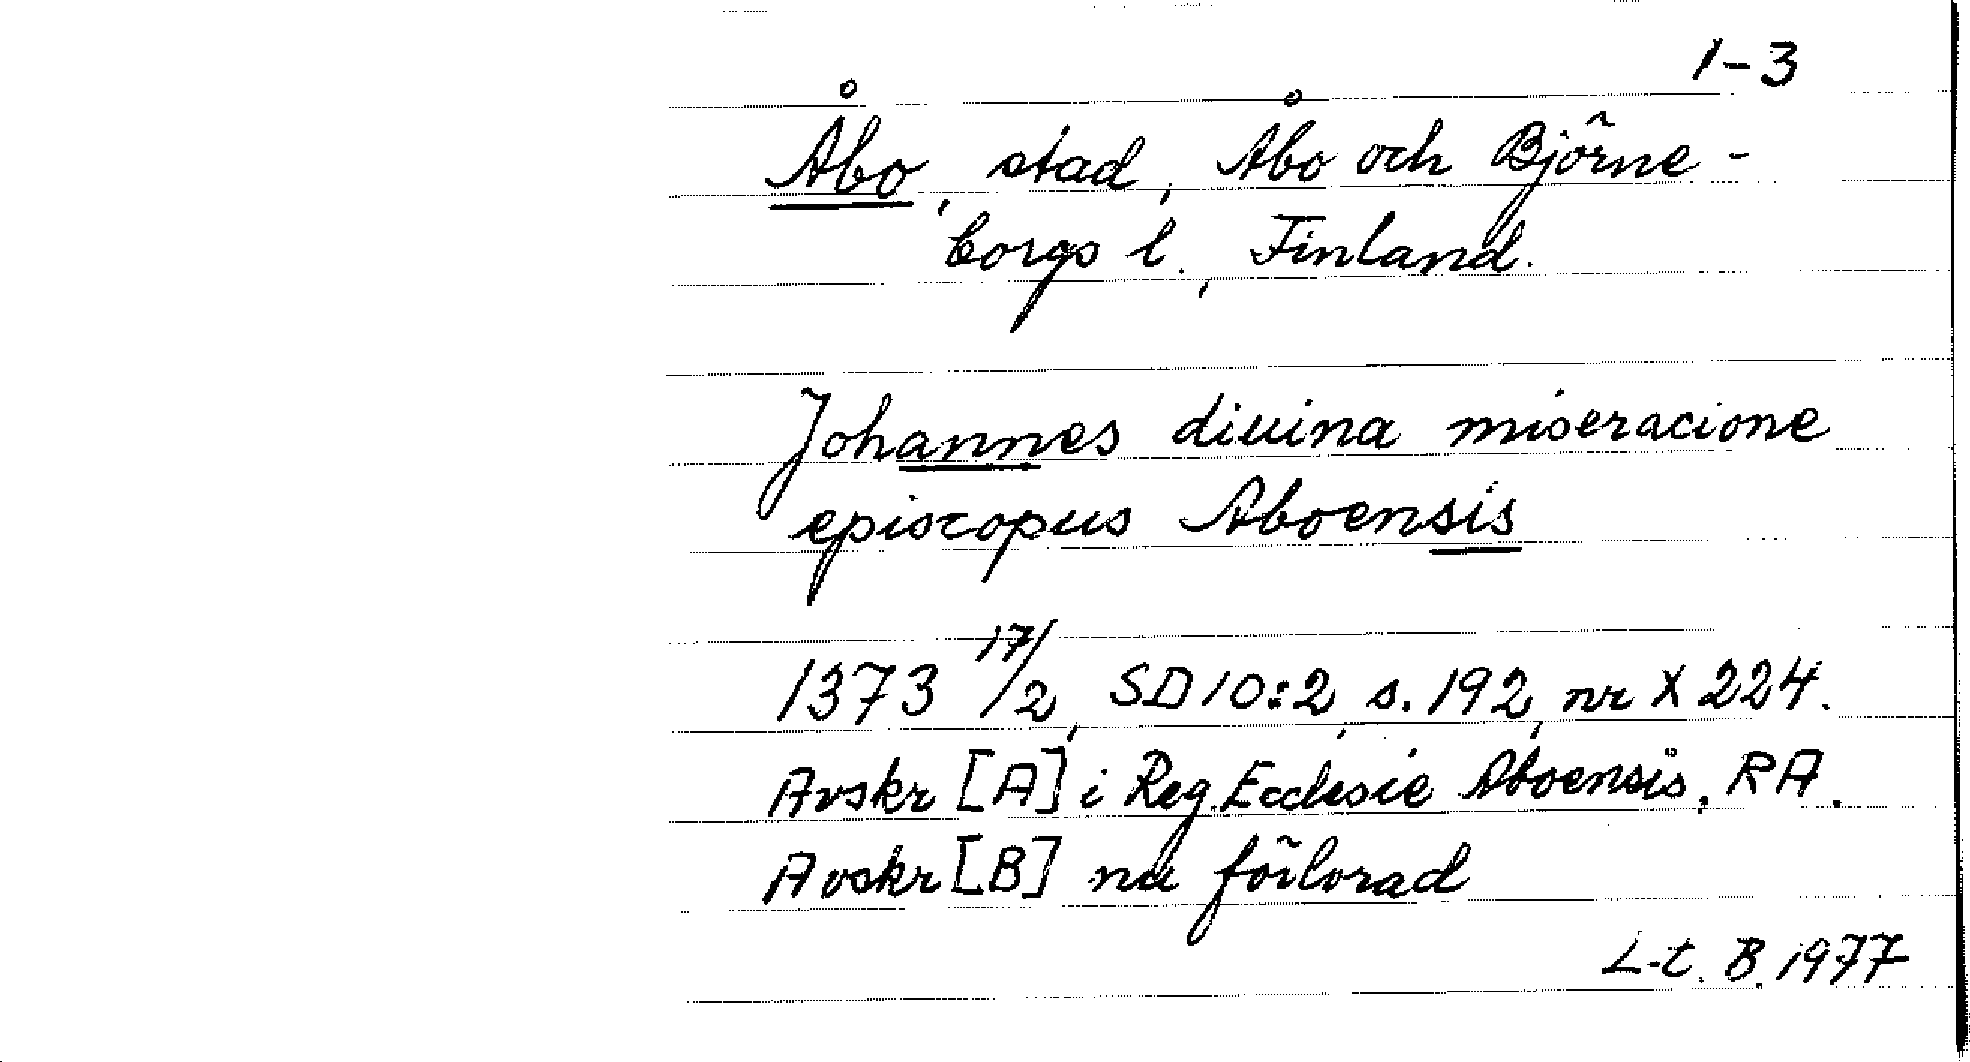 1-3
Åbo, stad, Åbo och Björne-
borgs l., Finland.
Johannes diuina miseracione
episcopus Aboensis
1373 17/2, SD 10:2, s. 192, nr X 224.
Avskr [A] i Reg. Ecclesie Aboensis, RA.
Avskr [B] nu förlorad
L-t. B. 1977